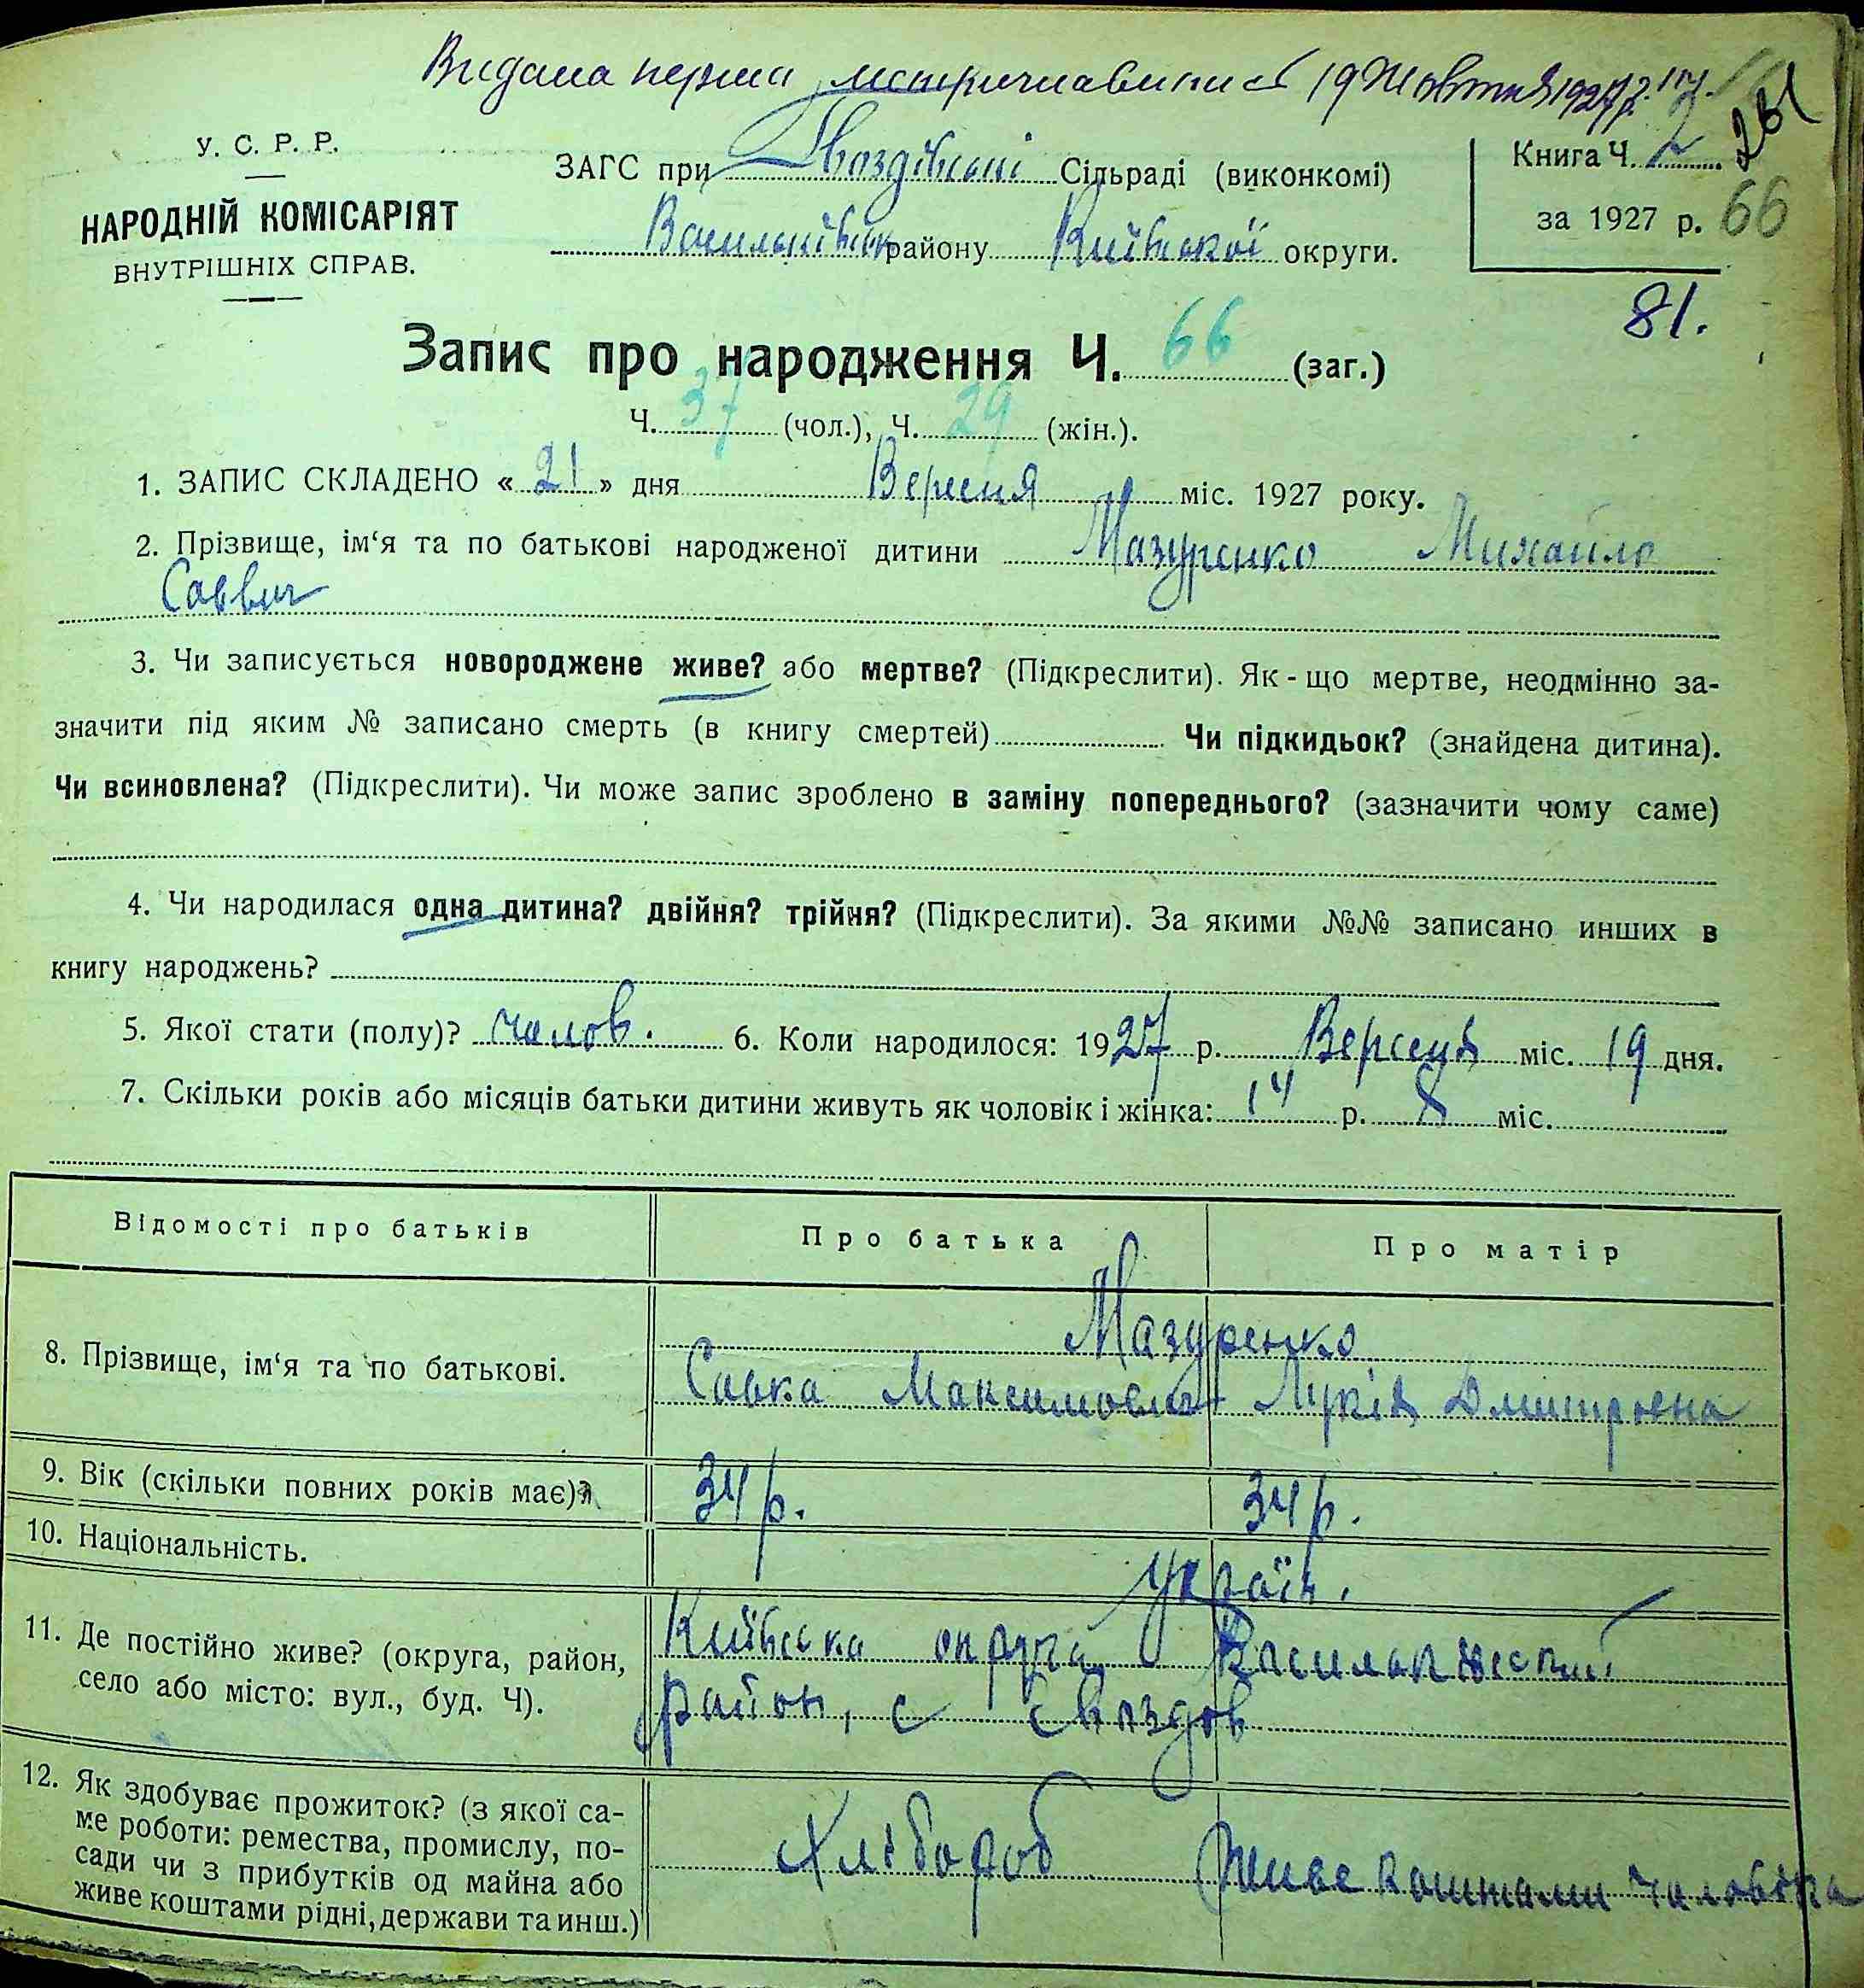 Видана перша метрична випись 19 Жовтня 1927 р.
261
У. С. Р. Р.
НАРОДНІЙ КОМІСАРІЯТ
ВНУТРІШНІХ СПРАВ.
ЗАГС при Гвоздівські Сільраді (виконкомі)
району Київської округи.
Книга Ч. 2
за 1927 р. 66
81.
Запис про народження Ч. 66 (заг.)
Ч. 37 (чол.), Ч. 29 (жін.).
1. ЗАПИС СКЛАДЕНО « 21 » дня Вересня міс. 1927 року.
2. Прізвище, ім‘я та по батькові народженої дитини Мазуренко Михайло
Саввич
3. Чи записується новороджене живе? або мертве? (Підкреслити). Як - що мертве, неодмінно за-
значити під яким № записано смерть (в книгу смертей) Чи підкидьок? (знайдена дитина).
Чи всиновлена? (Підкреслити). Чи може запис зроблено в заміну попереднього? (зазначити чому саме)
4. Чи народилася одна дитина? двійня? трійня? (Підкреслити). За якими №№ записано инших в
книгу народжень?
5. Якої стати (полу)? чолов. 6. Коли народилося: 1927 р. Вересня міс. 19 дня.
7. Скільки років або місяців батьки дитини живуть як чоловік і жінка: 14 р. 8 міс.
Відомості про батьків Про батька Про матір
8. Прізвище, ім‘я та по батькові.
Мазуренко
Савка Максимович Лукія Дмитровна
9. Вік (скільки повних років має)? 34 р. 34 р.
10. Національність. Україн.
11. Де постійно живе? (округа, район,
село або місто: вул., буд. Ч).
Київська округа Васильківский
район, с Гвоздов
12. Як здобуває прожиток? (з якої са-
ме роботи: ремества, промислу, по-
сади чи з прибутків од майна або
живе коштами рідні, держави та инш.)
Хлібороб Живе коштами чоловіка